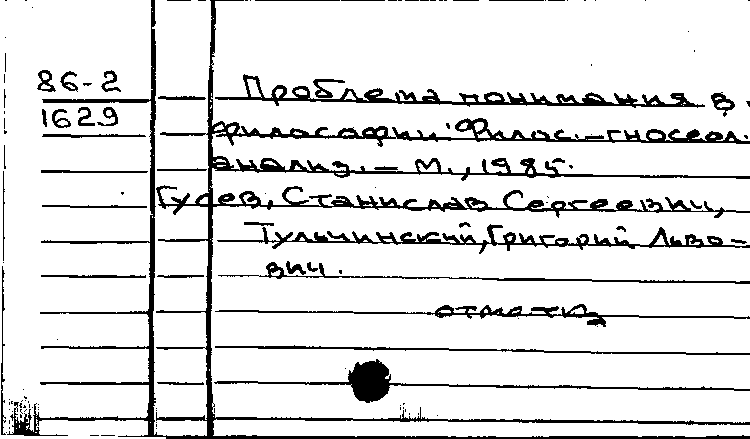 86-2
1629
Проблема понимания в
философии: Филос.-гносеол.
анализ. - М., 1985.
Гусев, Станислав Сергеевич,
Тульчинский, Григорий Льво-
вич.